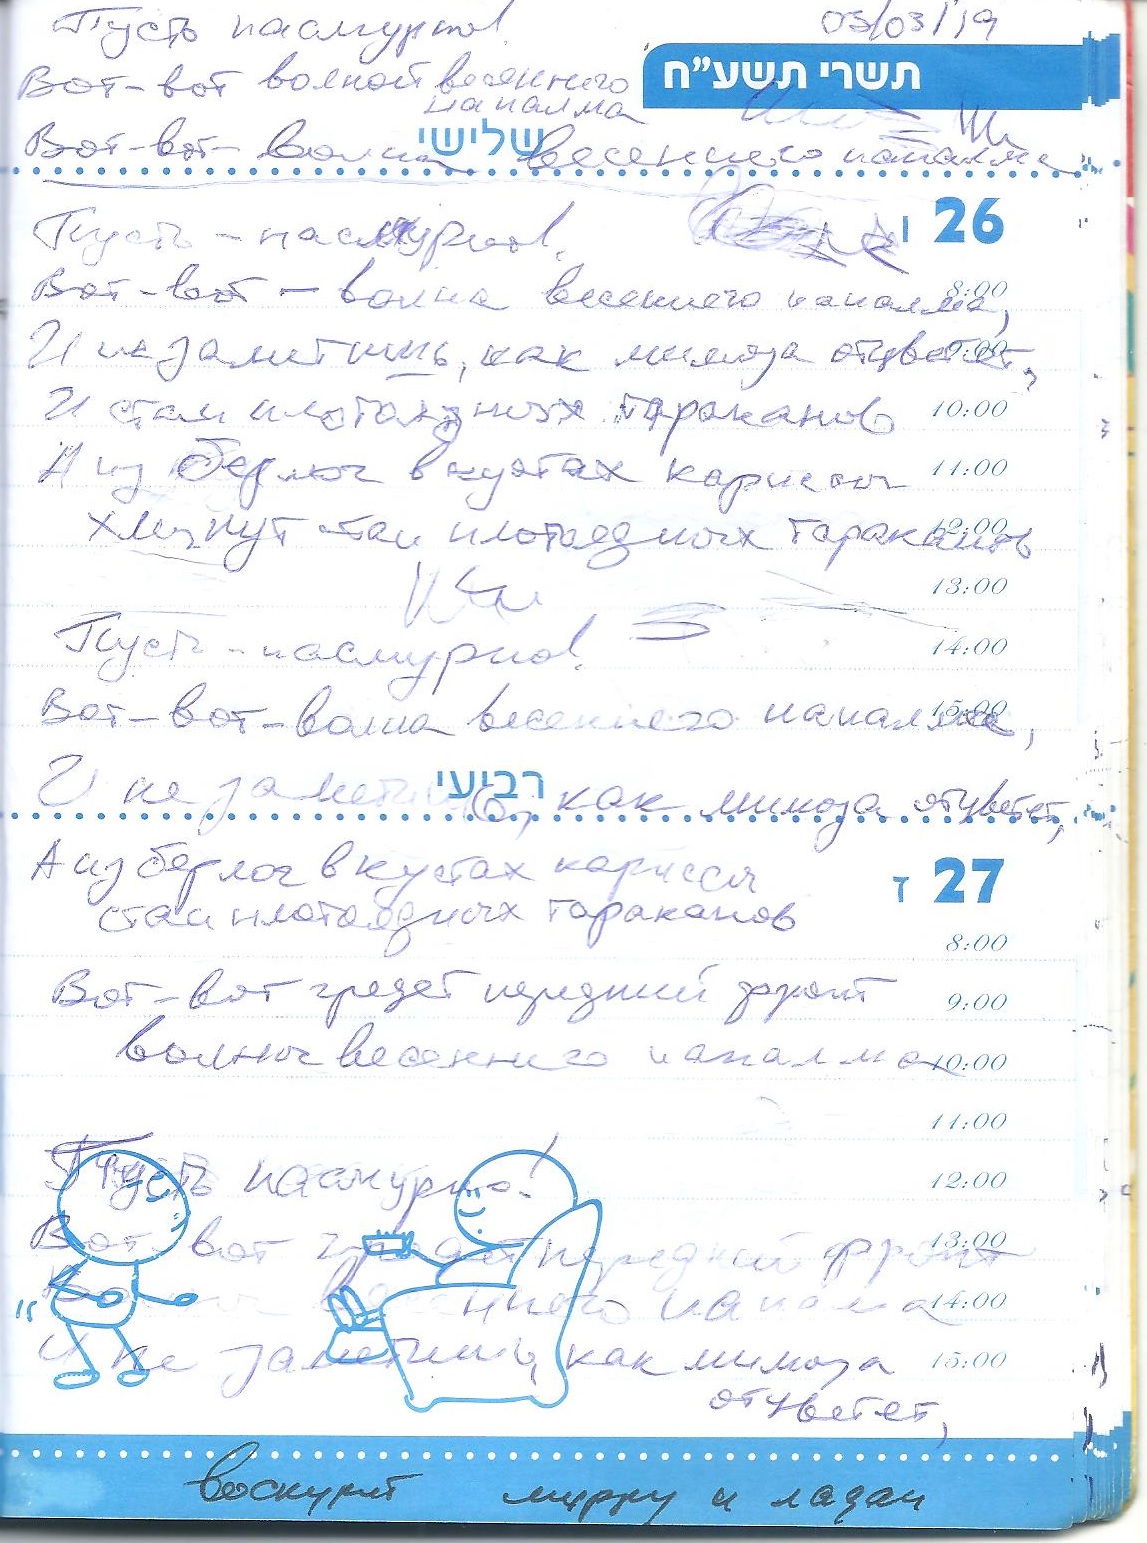 Пусть пасмурно!
03/03/19
תשרי תשע"ח
Вот-вот волной весеннего
напалма
שלישי
Вот-вот - волна весеннего напалма
26 ו
Пусть - пасмурно!
8:00
Вот-вот - волна весеннего напалма,
9:00
И не заметишь, как мимоза отцветет,
И стаи плотоядных тараканов
10:00
А из берлог в кустах кариссы
11:00
хлынут стаи плотоядных тараканов
12:00
13:00
Пусть - пасмурно!
14:00
Вот-вот-волна весеннего напалма,
15:00
רביעי
И не заметишь, как мимоза отцветет,
27 ז
А из берлог в кустах кариссы
стаи плотоядных тараканов
8:00
Вот-вот грядет передний фронт
9:00
волны весеннего напалма
10:00
11:00
Пусть пасмурно!
12:00
Вот-вот грядет передний фронт
13:00
Волны весеннего напалма
14:00
И не заметишь, как мимоза
15:00
отцветет,
воскурят мирру и ладан